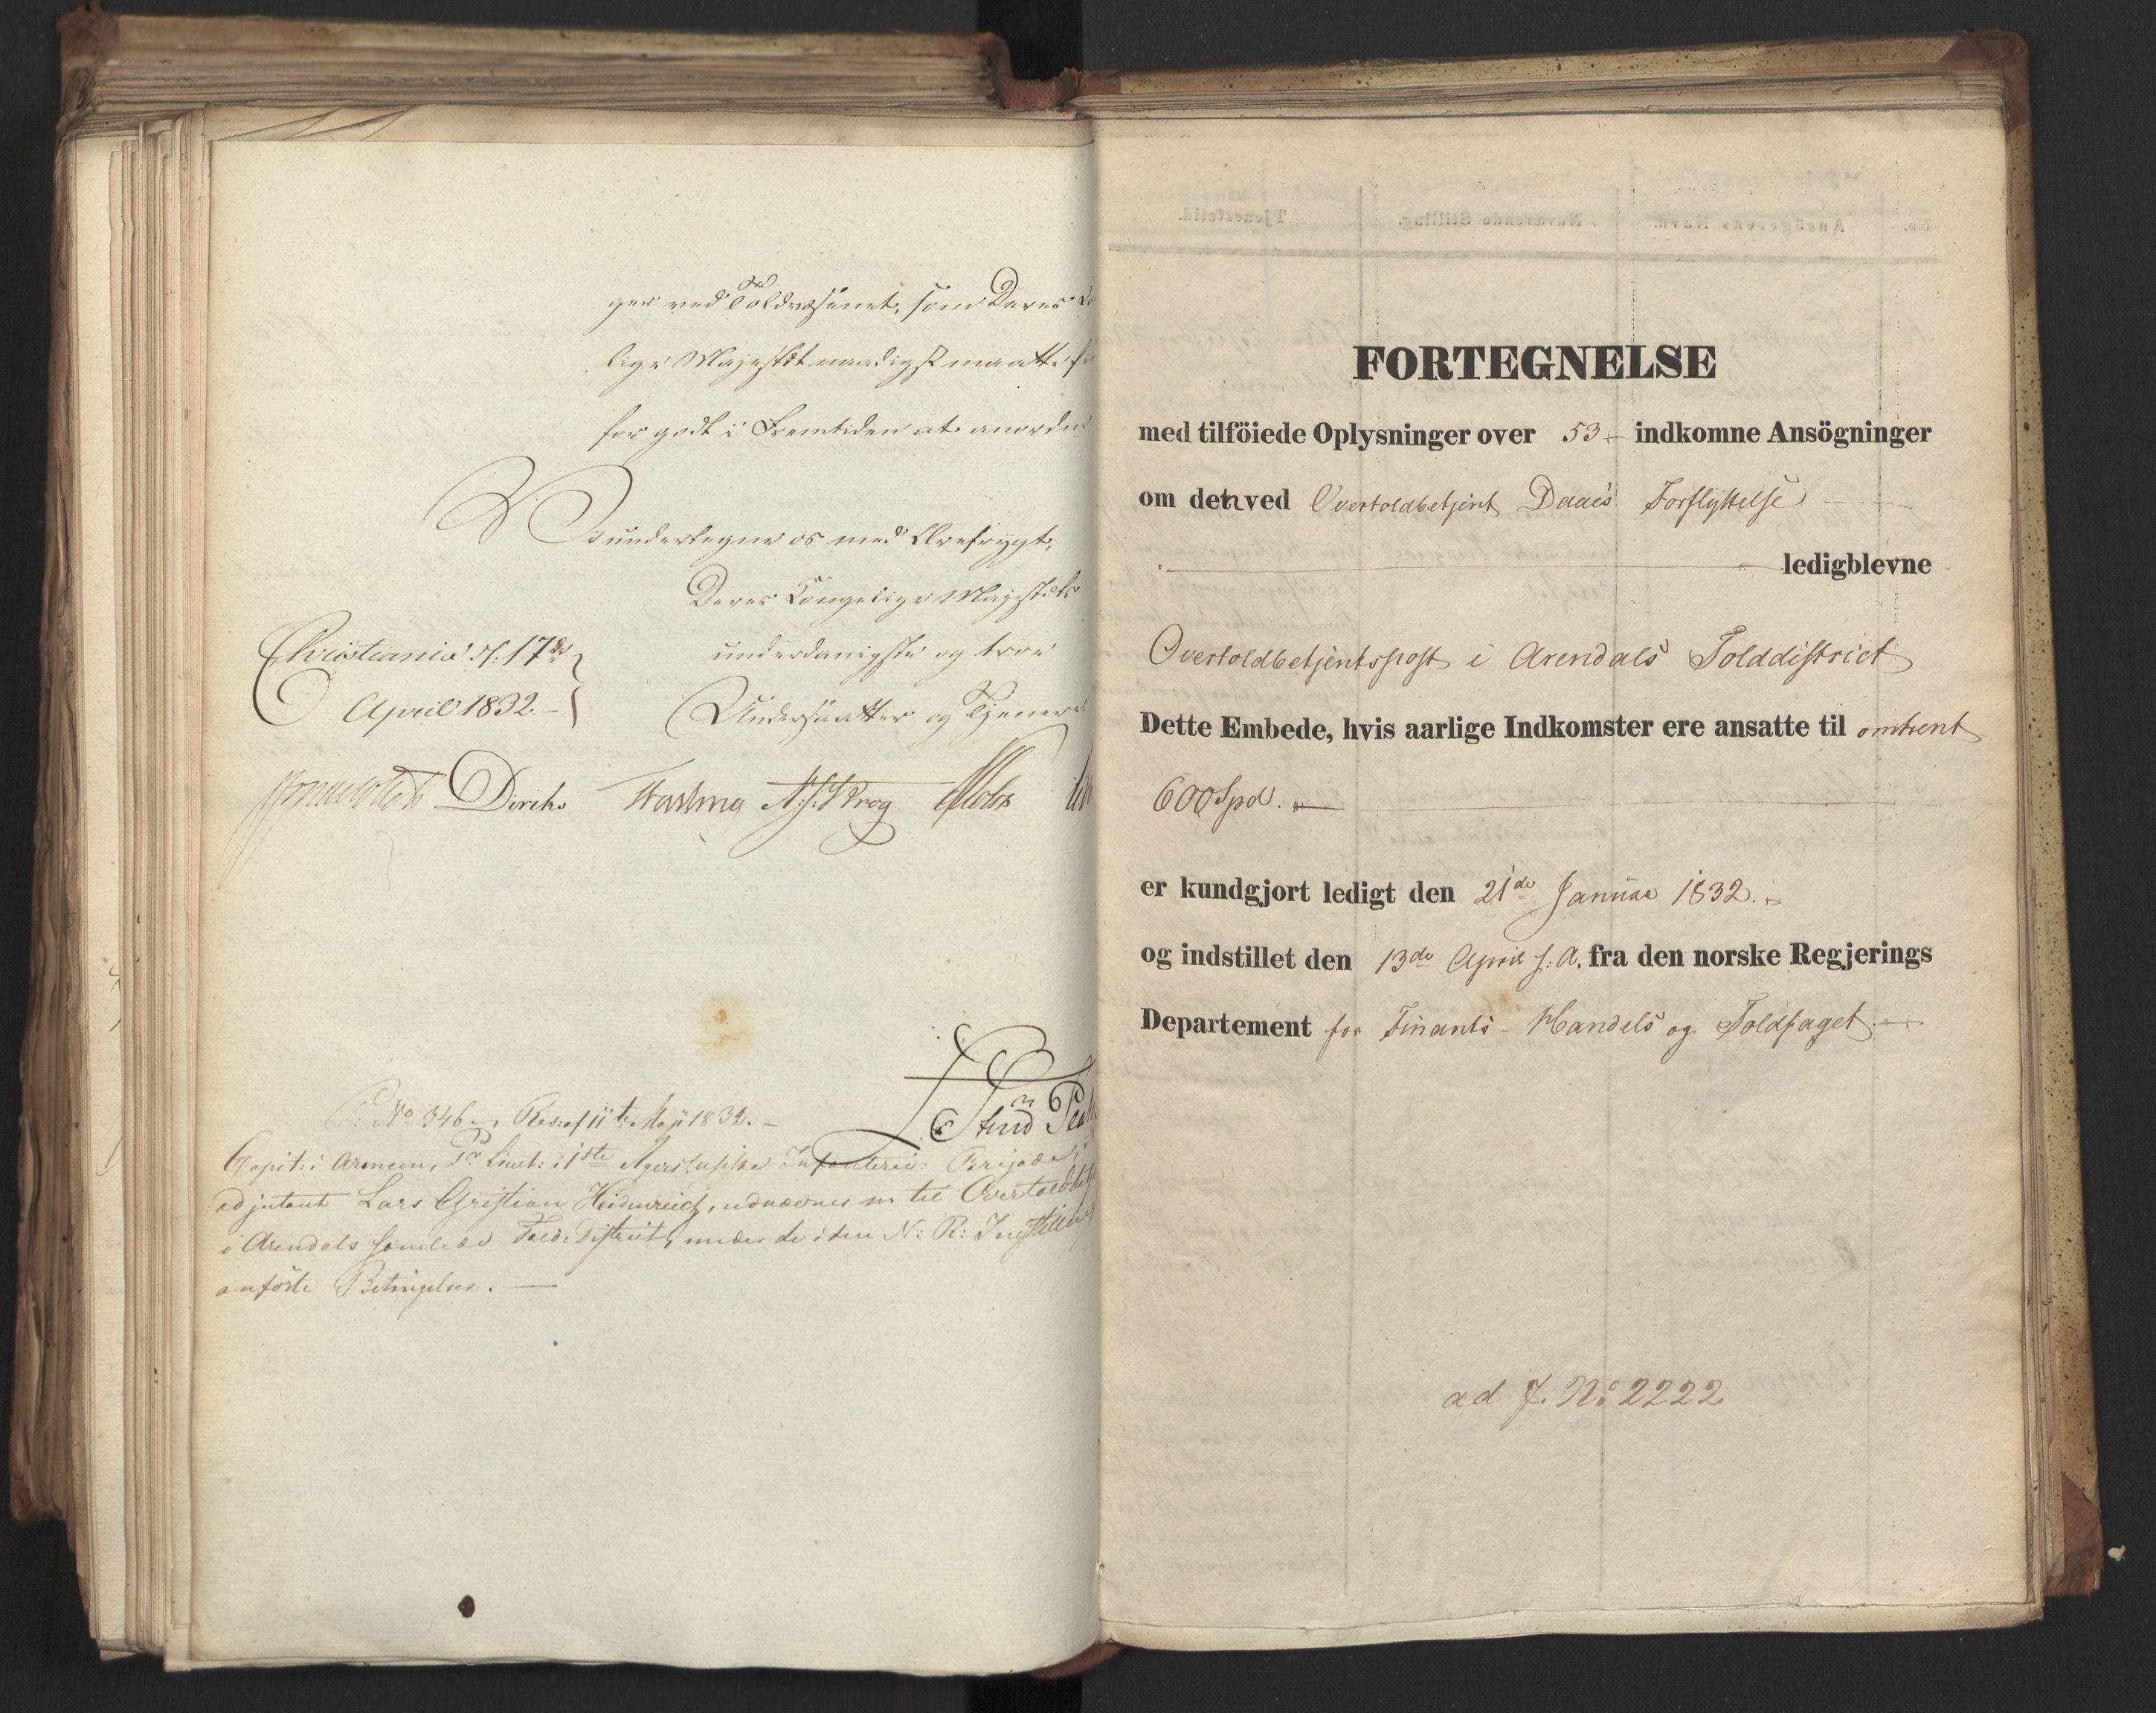 ger ved Toldvæsenet, som Deres
lige Majestæt naadigst maatte
for godt i Fremtiden at anordne
Vi undertegne os med Ærefrygt,
Deres Kongelige Majestæts
Christiania d: 17de
underdanigste og troe
April 1832.
Undersaatter og Tjenere
Diriks A: S: Krog
No 346. Res: af 11te Maji 1832.
Capit: i Armeen, Pr Lieut: i 1ste Agershusiske Infanterie-Brigade,
adjutant Lars Christian Heidenreich, udnævnes til Overtoldbetj
i Arendals Told-District, under de i den N: R: Indstilling
anførte Betingelser.
FORTEGNELSE
med tilföiede Oplysninger over 53 indkomne Ansögninger
om den ved Overtoldbetjent Daaes Forflyttelse
ledigblevne
Overtoldbetjentspost i Arendals Tolddistrict
Dette Embede, hvis aarlige Indkomster ere ansatte til omtrent
600 Spd.
er kundgjort ledigt den 21de Januar 1832.
og indstillet den 13de April s. A. fra den norske Regjerings
Departement for Finants- Handels og Toldfaget
ad J. No 2222